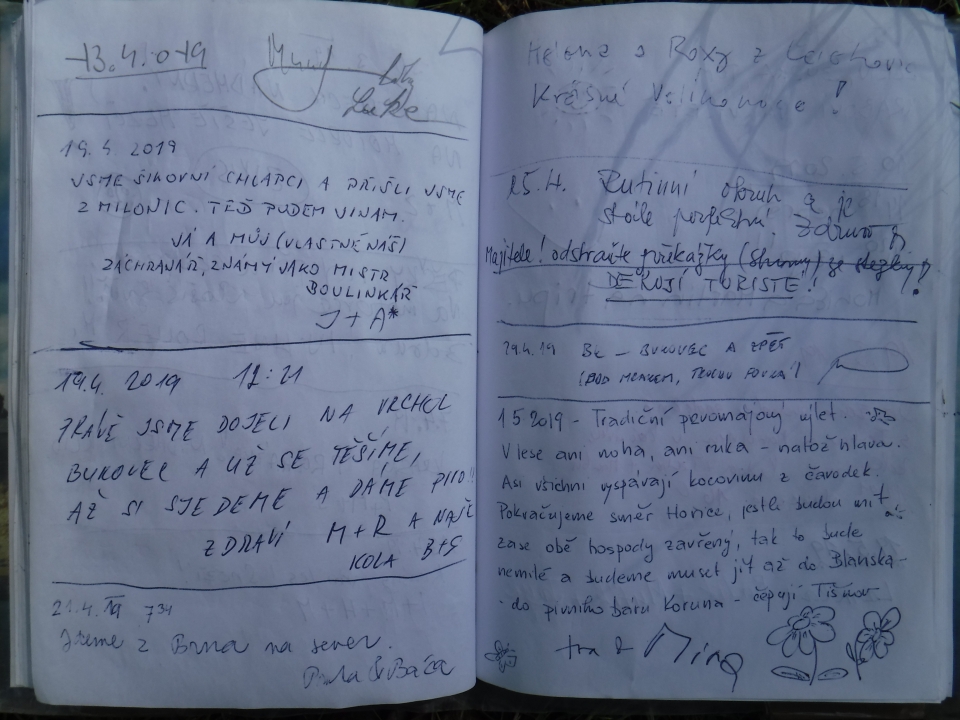 13.4.019
Luke
19.4. 2019
JSME ŠIKOVNÍ CHLAPCI A PŘIŠLI JSME
Z MILONIC. TEĎ PUDEM JINAM.
JÁ A MŮJ (VLASTNĚ NÁŠ)
ZÁCHRANÁŘ, ZNÁMÝ JAKO MISTR
BOULINKÁŘ
J + A*
19.4. 2019 12:21
PRÁVĚ JSME DOJELI NA VRCHOL
BUKOVEC A UŽ SE TĚŠÍME,
AŽ SI SJEDEME A DÁME PIVO!!
ZDRAVÍ M+R A NAŠE
KOLA B+G
21.4. 19 734
Jdeme z Brna na sever.
& Báča
Helena a Roxy z
Krásné Velikonoce!
25.4. Rutinní obchůzka je
stále perfektní. Zdravo
Majitelé! odstraňte překážky (stromy) ze stezky!
DĚKUJÍ TURISTÉ!
29.4.19 BK – BUKOVEC A ZPĚT
(POD MRAKEM, TROCHU FOUKÁ!)
1 5 2019 - Tradiční prvomájový výlet.
V lese ani noha, ani ruka - natož hlava.
Asi všichni vyspávají kocovinu z čarodek.
Pokračujeme směr Hořice, jestli budou mít
zase obě hospody zavřený, tak to bude
nemilé a budeme muset jít až do Blanska -
- do pivního báru Koruna - čepají Tišnov.